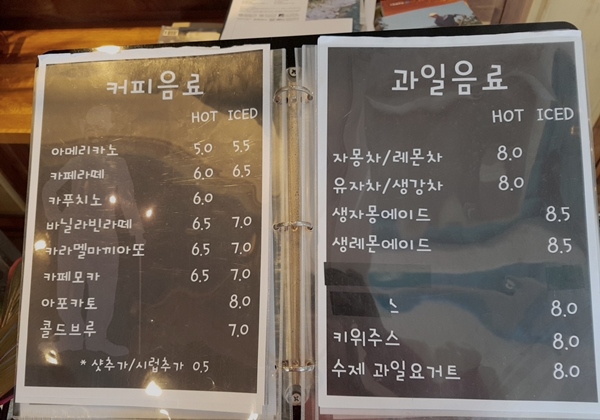 커피음료
HOT ICED
아메리카노 5.0 5.5
카페라떼 6.0 6.5
카푸치노 6.0
바닐라빈라떼 6.5 7.0
카라멜마끼아또 6.5 7.0
카페모카 6.5 7.0
아포카토 8.0
콜드브루 7.0
* 샷추가/시럽추가 0.5
과일음료
HOT ICED
자몽차/레몬차 8.0
유자차/생강차 8.0
생자몽에이드 8.5
생레몬에이드 8.5
스 8.0
키위주스 8.0
수제 과일요거트 8.0